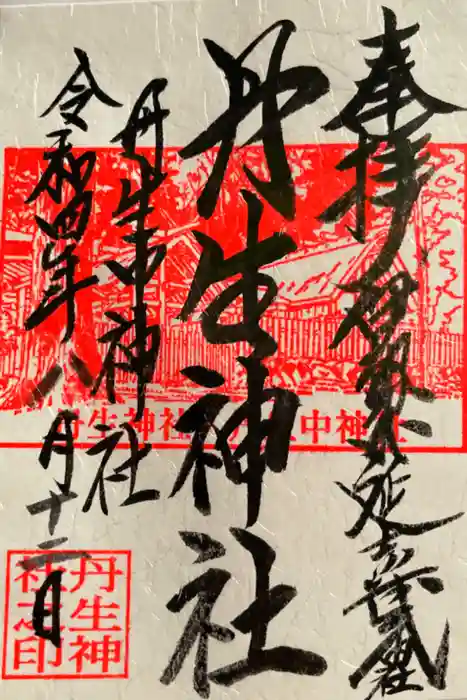 奉拝 伊勢延喜式内社
丹生神社
丹生中神社
令和四年八月十二日
丹生神社 丹生中神社
丹生神
社之印